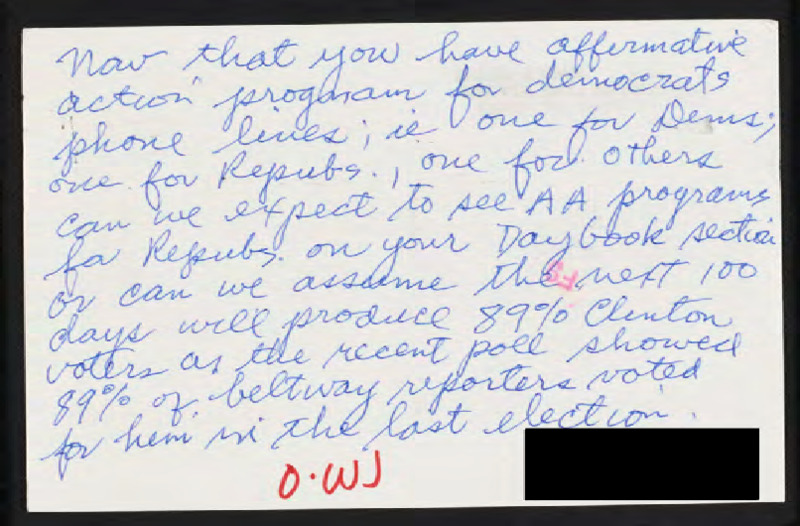 Now that you have affirmative
action program for democrats
phone lines; ie one for Dems;
one for Repubs., one for others
can we expect to see AA programs
for Repubs. on your Daybook section
or can we assume the next 100
days will produce 89% Clinton
voters as the recent poll showed
89% of beltway reporters voted
for him in the last election.
O.WJ